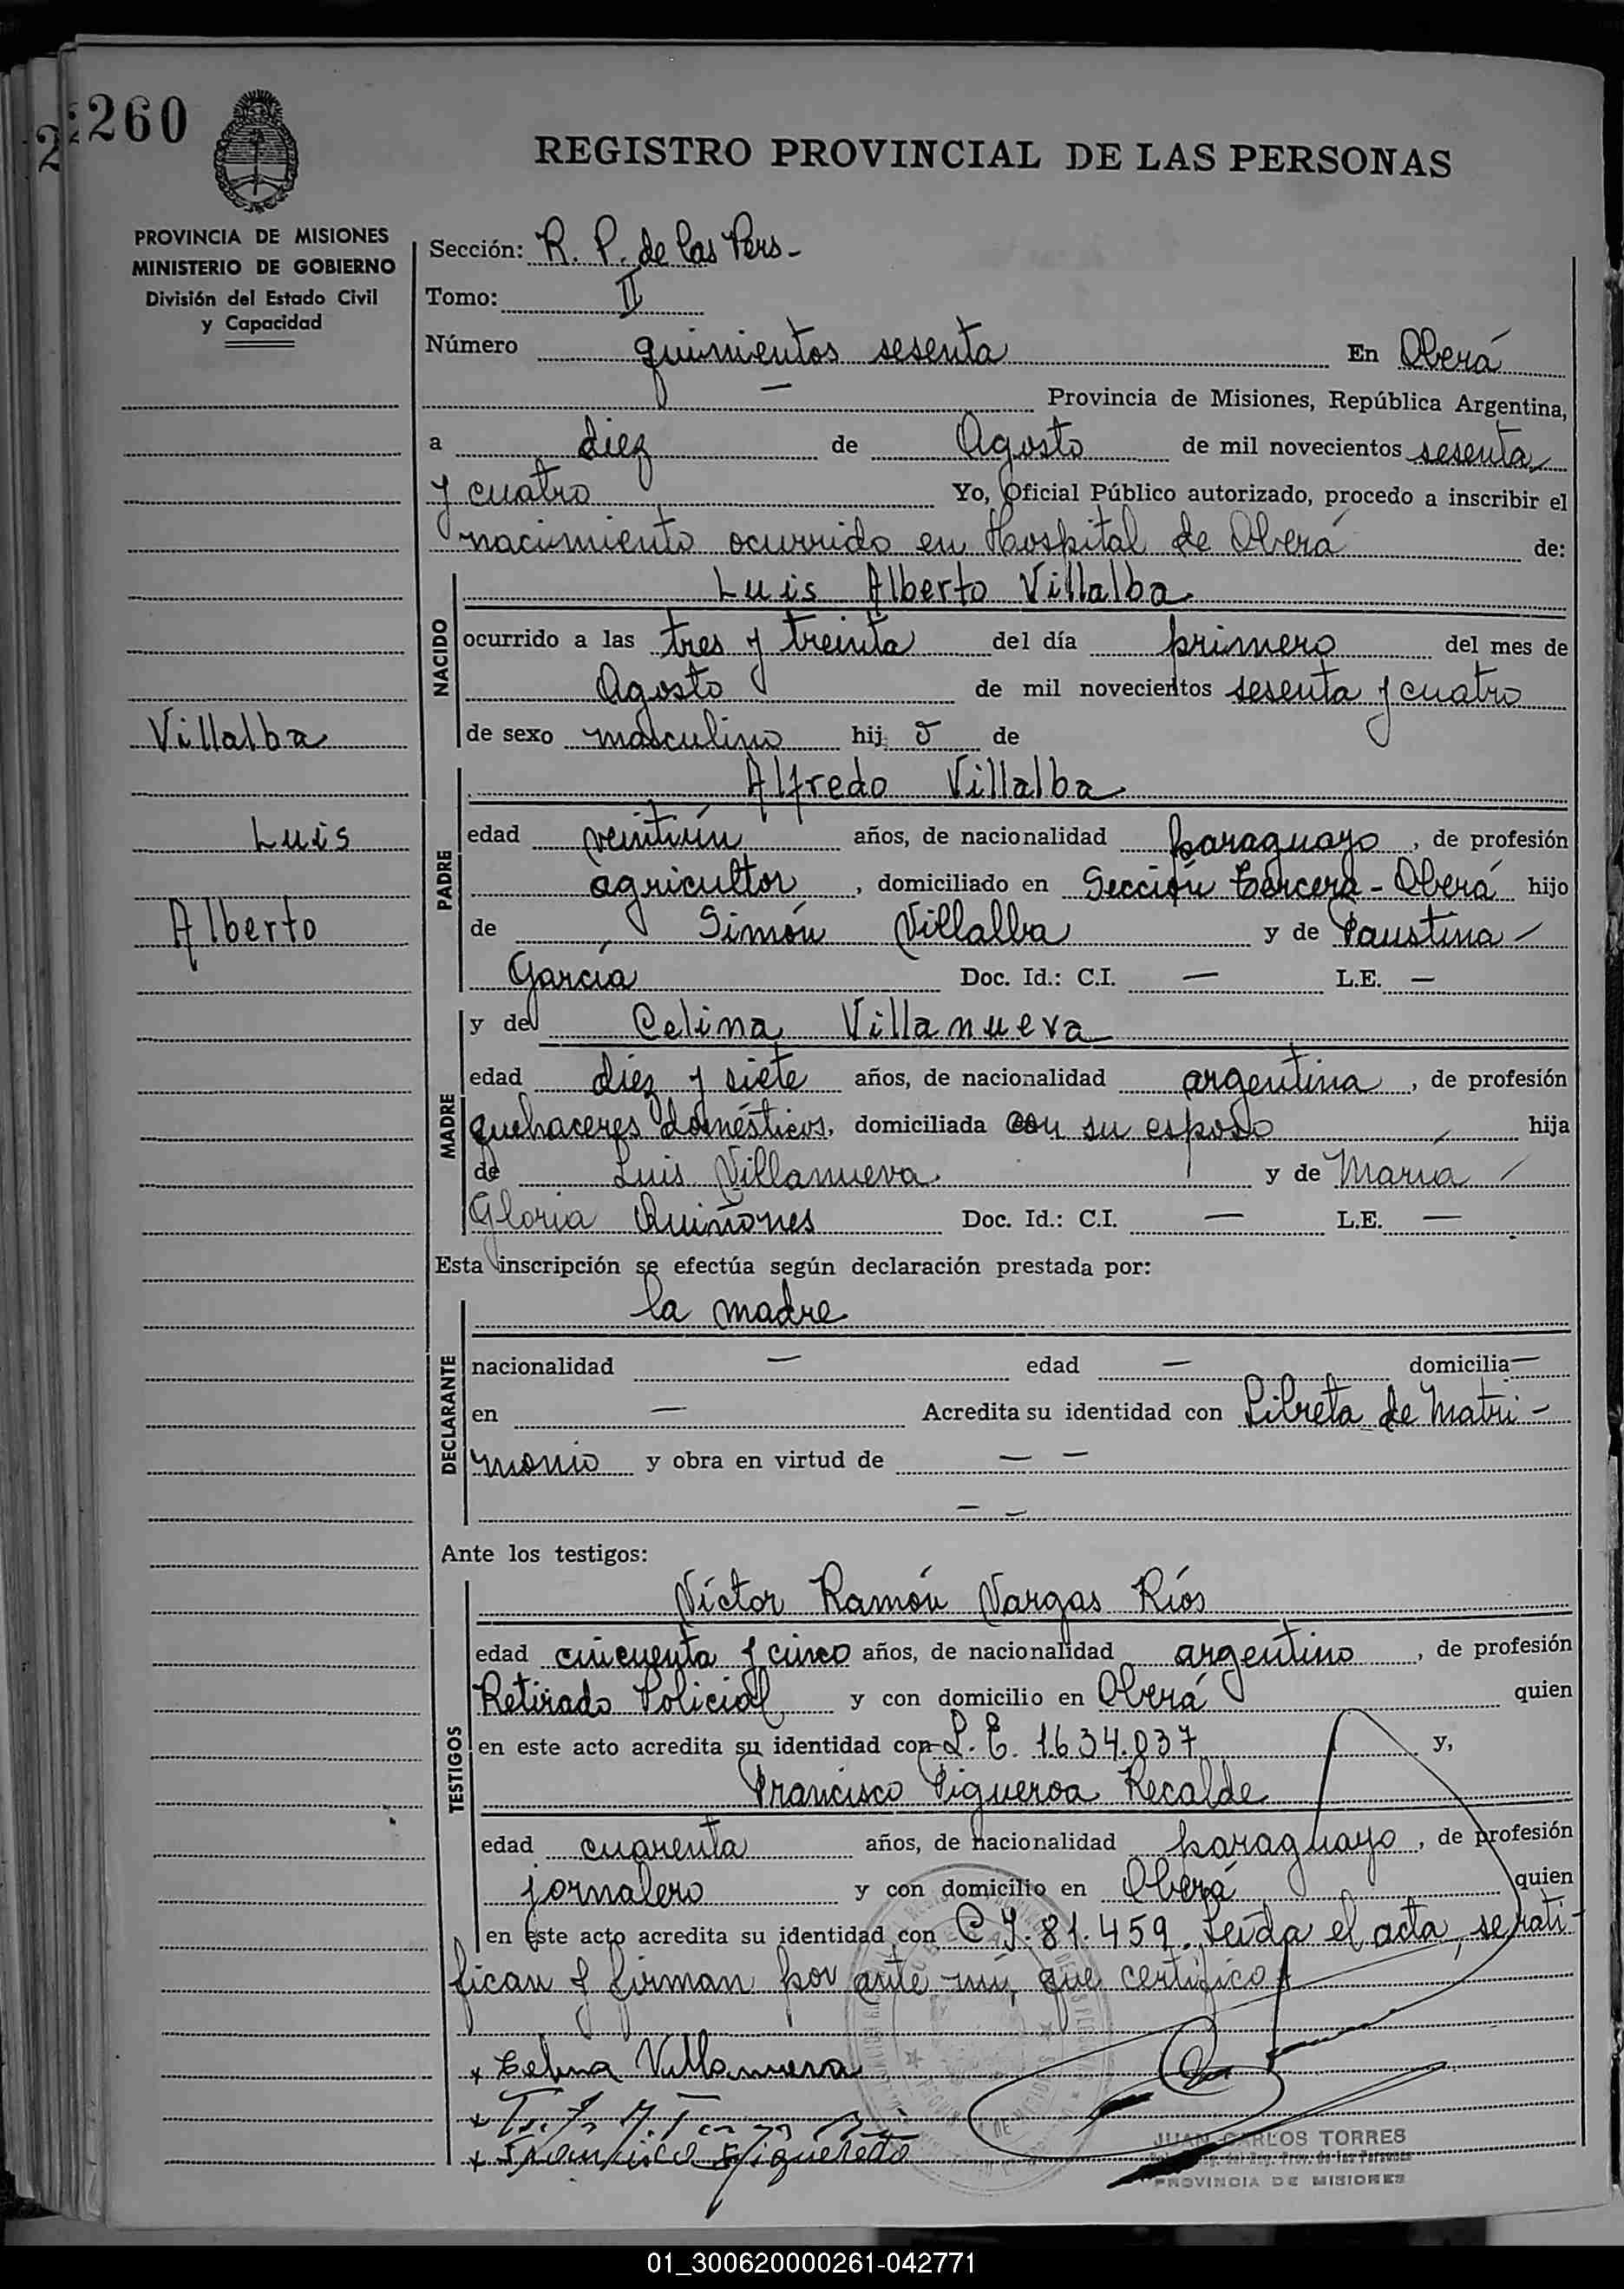 260
REGISTRO PROVINCIAL DE LAS PERSONAS
PROVINCIA DE MISIONES
MINISTERIO DE GOBIERNO
División del Estado Civil
y Capacidad
Villalba
Luis
Alberto
Sección: R. P. de las Pers-
Tomo: II
Número quinientos sesenta En Oberá
— Provincia de Misiones, República Argentina,
a diez de Agosto de mil novecientos sesenta
y cuatro Yo, Oficial Público autorizado, procedo a inscribir el
nacimiento ocurrido en Hospital de Oberá de:
NACIDO
Luis Alberto Villalba
ocurrido a las tres y treinta del día primero del mes de
Agosto de mil novecientos sesenta y cuatro
de sexo masculino hij o de
PADRE
Alfredo Villalba
edad veintiún años, de nacionalidad paraguayo, de profesión
agricultor, domiciliado en Sección Tercera - Oberá hijo
de Simón Villalba y de Faustina
García Doc. Id.: C.I. — L.E. —
MADRE
y de Celina Villanueva
edad diez y siete años, de nacionalidad argentina, de profesión
quehaceres domésticos, domiciliada con su esposo hija
de Luis Villanueva y de María
Gloria Quiñones Doc. Id.: C.I. — L.E. —
Esta inscripción se efectúa según declaración prestada por:
DECLARANTE
la madre
nacionalidad — edad — domicilia—
en — Acredita su identidad con Libreta de Matri-
monio y obra en virtud de — —
— —
Ante los testigos:
TESTIGOS
Víctor Ramón Vargas Ríos
edad cincuenta y cinco años, de nacionalidad argentino, de profesión
Retirado Policial y con domicilio en Oberá quien
en este acto acredita su identidad con L. E. 1634.037 y,
Francisco Figueroa Recalde
edad cuarenta años, de nacionalidad paraguayo, de profesión
jornalero y con domicilio en Oberá quien
en este acto acredita su identidad con C. I. 81.459. Leída el acta, se rati-
fican y firman por ante mí, que certifico.
x Celina Villanueva
x Francisco
JUAN CARLOS TORRES
PROVINCIA DE MISIONES
01_300620000261-042771